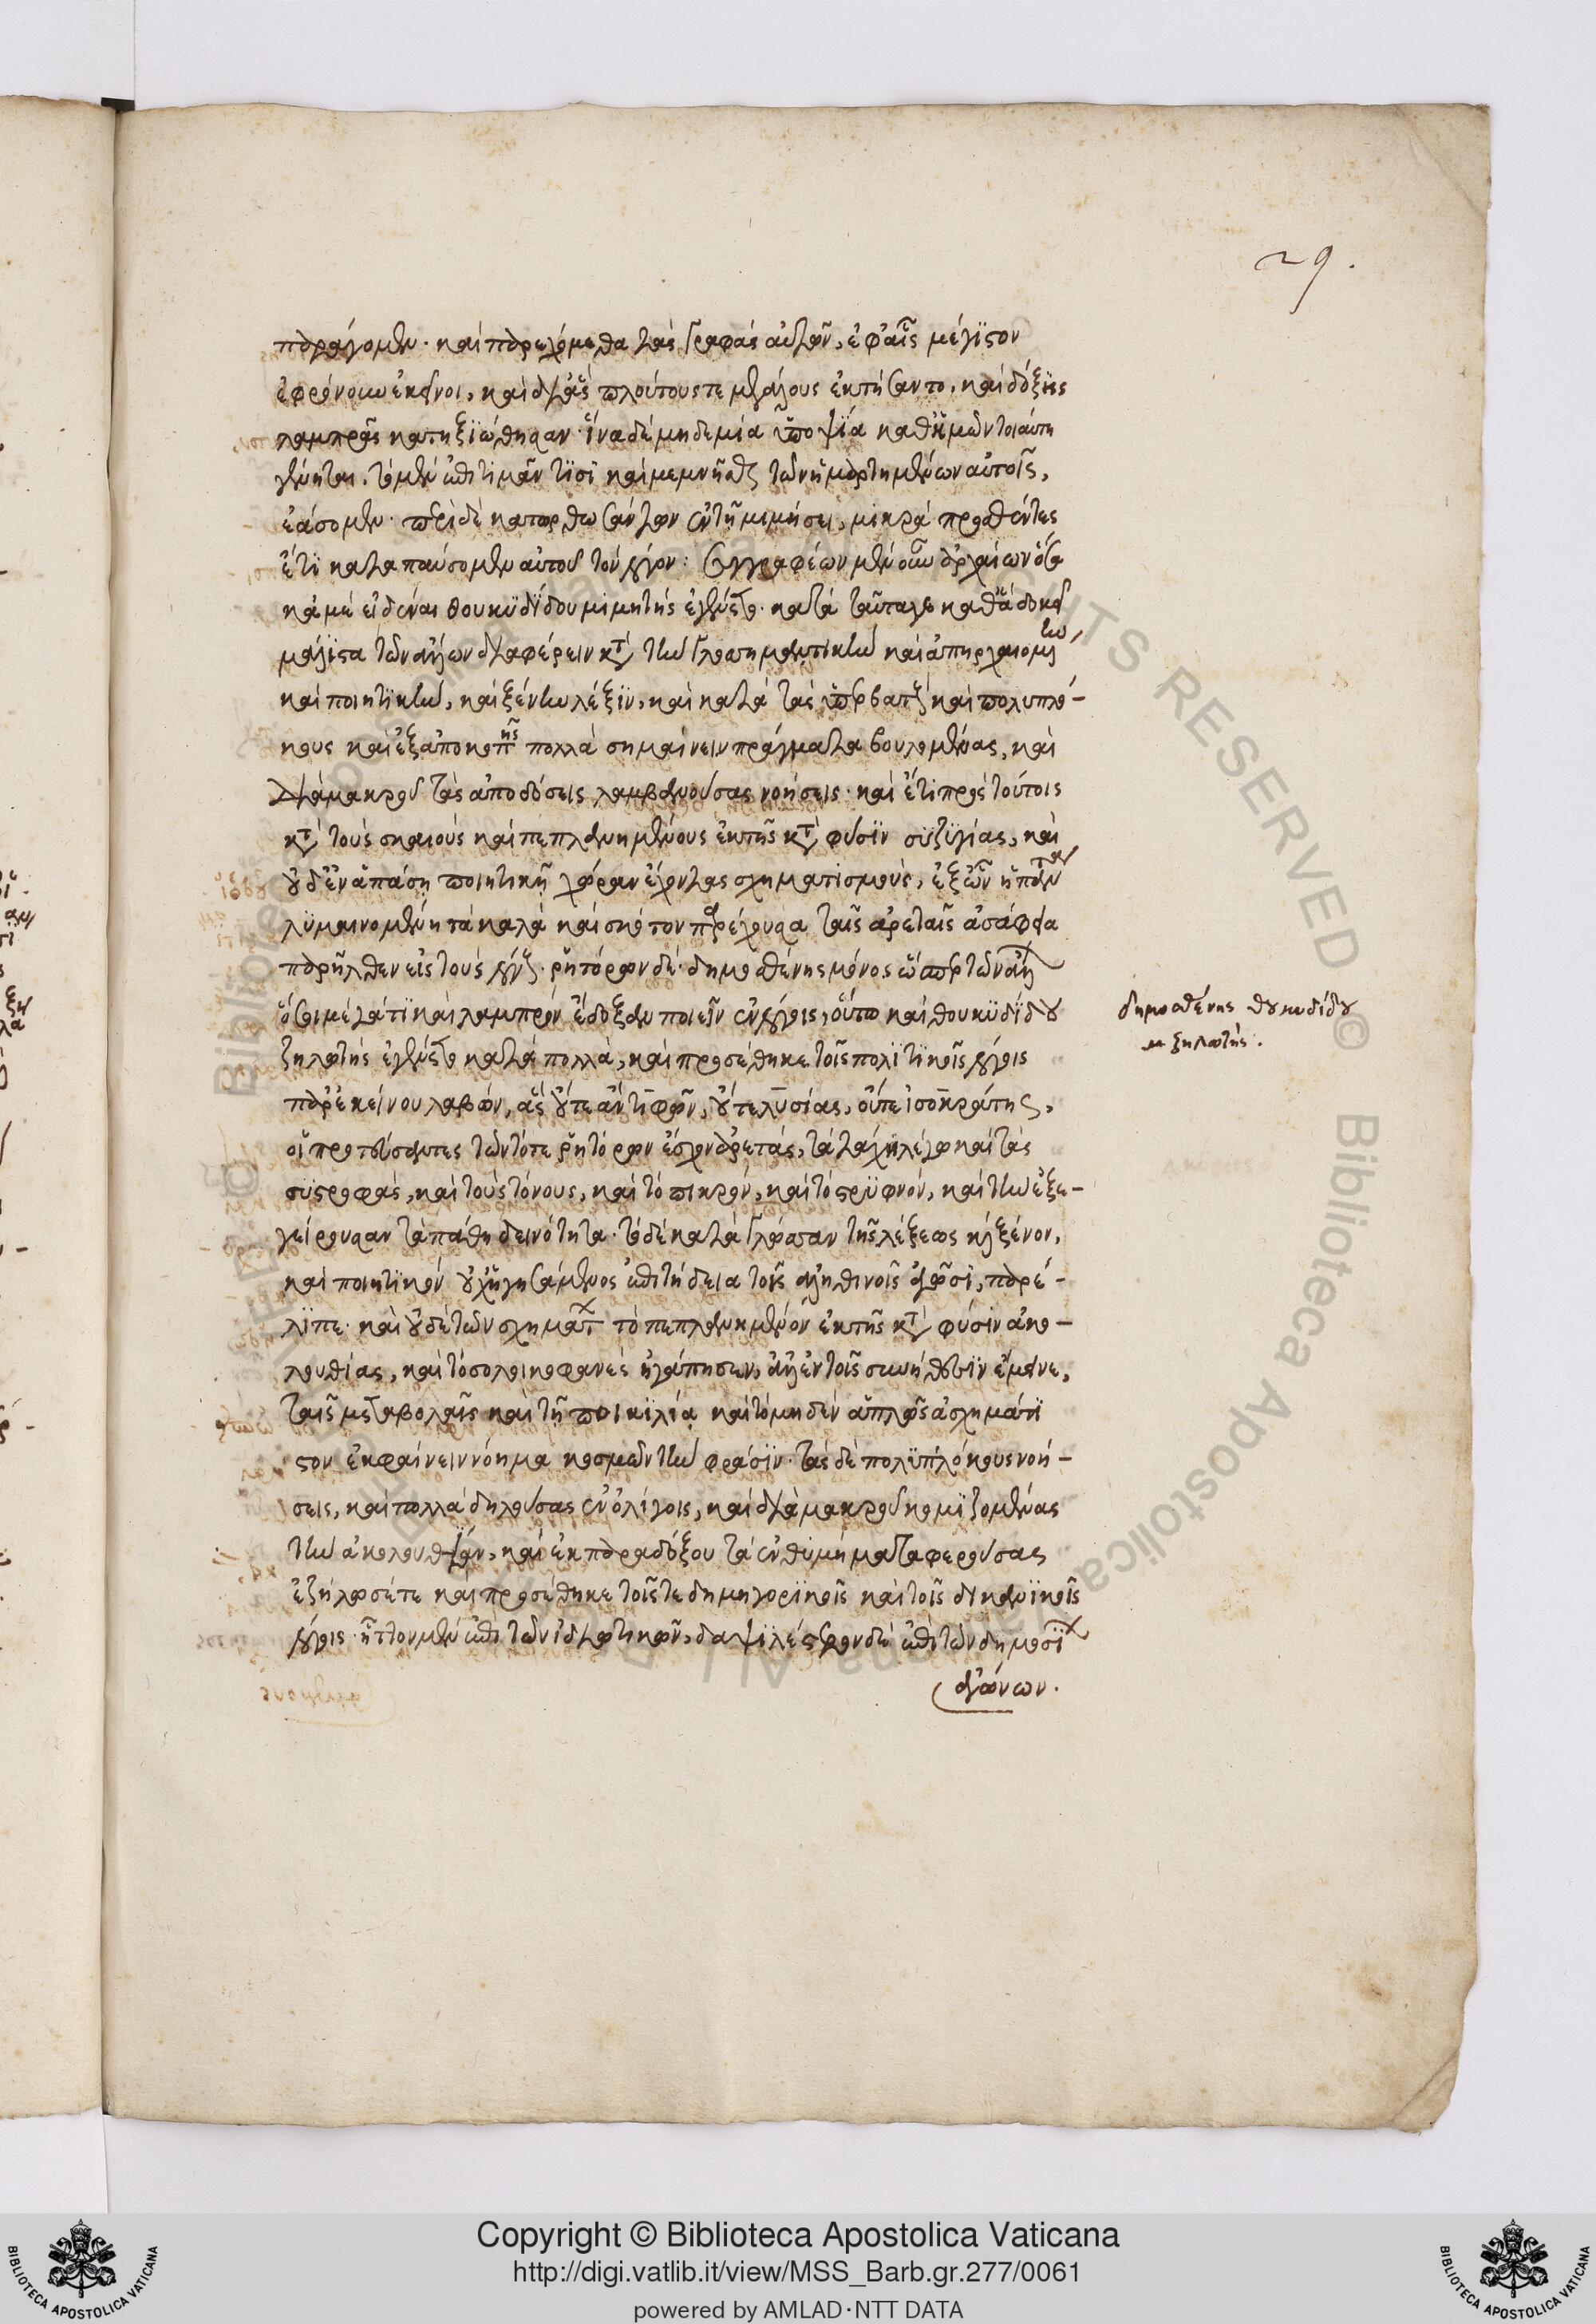 29.
παράγομεν· καὶ παρεχόμεθα τὰς γραφὰς αὐτῶν, ἐφ' αἷς μέγϊστον
ἐφρόνουν ἐκεῖνοι, καὶ δι' ἃς πλούτους τε μεγάλους ἐκτήσαντο, καὶ δόξης
λαμπρᾶς κατηξϊώθησαν· ἵνα δὲ μηδεμία ὑποψΐα καθ' ἡμῶν τοιαύτη
γένηται. τὸ μὲν ἐπιτιμᾶν τϊσὶ καὶ μεμνῆσθαι τῶν ἡμαρτημένων αὐτοῖς,
ἐάσομεν· περὶ δὲ κατορθωσάντων ἐν τῇ μιμήσει, μικρὰ προσθέντες
ἔτϊ καταπαύσομεν αὐτοῦ τὸν λόγον: συγγραφέων μὲν οὖν ἀρχαίων ὅσα
κἀμὲ εἰδέναι θουκϋδΐδου μιμητὴς ἐγένετο· κατὰ ταῦτα γε καθ' ἃ δοκεῖ
μάλϊστα τῶν ἄλλων διαφέρειν κατὰ τὴν γλωσσηματικὴν καὶ ἀπηρχαιομένην
καὶ ποιητϊκὴν, καὶ ξένην λέξϊν, καὶ κατὰ τὰς ὑπερβατὰς καὶ πολυπλό-
κους καὶ ἐξ ἀποκοπῆς πολλὰ σημαίνειν πράγματα βουλομένας, καὶ
διὰ μακροῦ τὰς ἀποδόσεις λαμβανούσας νοήσεις· καὶ ἔτι πρὸς τούτοις
κατὰ τοὺς σκαιοὺς καὶ πεπλανημένους ἐκ τῆς κατὰ φύσϊν συζυγίας, καὶ
οὐδ' ἐν ἁπάση ποιητικῇ χώραν ἔχοντας σχηματισμοὺς, ἐξ ὧν ἡ πάντων
λϋμαινομένη τὰ καλὰ καὶ σκότον παρέχουσα ταῖς ἀρεταῖς ἀσάφεια
παρῆλθεν εἰς τοὺς λόγους· ῥητόρων δὲ· δημοσθένης μόνος ὥσπερ τῶν ἄλλων
ὅσοι μέγα τϊ καὶ λαμπρὸν ἔδοξαν ποιεῖν ἐν λόγοις, οὕτω καὶ θουκϋδΐδου
ζηλωτὴς ἐγένετο κατὰ πολλὰ, καὶ προσέθηκε τοῖς πολϊτϊκοῖς λόγοις
παρ' ἐκείνου λαβὼν, ἃς οὔτε ἀντϊφῶν, οὔτε λυσίας, οὔτε ἰσοκράτης,
οἱ πρωτεύσαντες τῶν τότε ῥητόρων ἔσχον ἀρετὰς, τὰ τάχη λέγω καὶ τὰς
συστροφὰς, καὶ τοὺς τόνους, καὶ τὸ πικρὸν, καὶ τὸ στρϋφνὸν, καὶ τὴν ἐξε-
γείρουσαν τὰ πάθη δεινότητα· τὸ δὲ κατὰ γλώσσαν τῆς λέξεως καὶ ξένον,
καὶ ποιητϊκὸν οὐχ ἡγησάμενος ἐπιτήδεια τοῖς ἀληθινοῖς ἀγῶσϊ, παρέ-
λϊπε· καὶ οὐδὲ τῶν σχημάτων τὸ πεπλανημένον ἐκ τῆς κατὰ φύσϊν ἀκο-
λουθίας, καὶ τὸ σολοικοφανὲς ἠγάπησεν, ἀλλ' ἐν τοῖς συνήθεσϊν ἔμεινε,
ταῖς μεταβολαῖς καὶ τῇ ποικϊλίᾳ καὶ τὸ μηδὲν ἁπλῶς ἀσχημάτϊ
στον ἐκφαίνειν νόημα κοσμῶν τὴν φράσϊν· τὰς δὲ πολϋπλόκους νοή-
σεις, καὶ πολλὰ δηλούσας ἐν ὀλίγοις, καὶ διὰ μακροῦ κομϊζομένας
τὴν ἀκολουθΐαν, καὶ ἐκ παραδόξου τὰ ἐνθϋμήματα φερούσας
ἐζήλωσέ τε καὶ προσέθηκε τοῖς τε δημηγορϊκοῖς καὶ τοῖς δικανϊκοῖς
λόγοις· ἧττον μὲν ἐπὶ τῶν ἰδιωτικῶν, δαψϊλέστερον δὲ ἐπὶ τῶν δημοσΐων
ἀγώνων.
δημοσθένης θουκυδίδου
ζηλωτής.
Copyright © Biblioteca Apostolica Vaticana
http://digi.vatlib.it/view/MSS_Barb.gr.277/0061
powered by AMLAD·NTT DATA